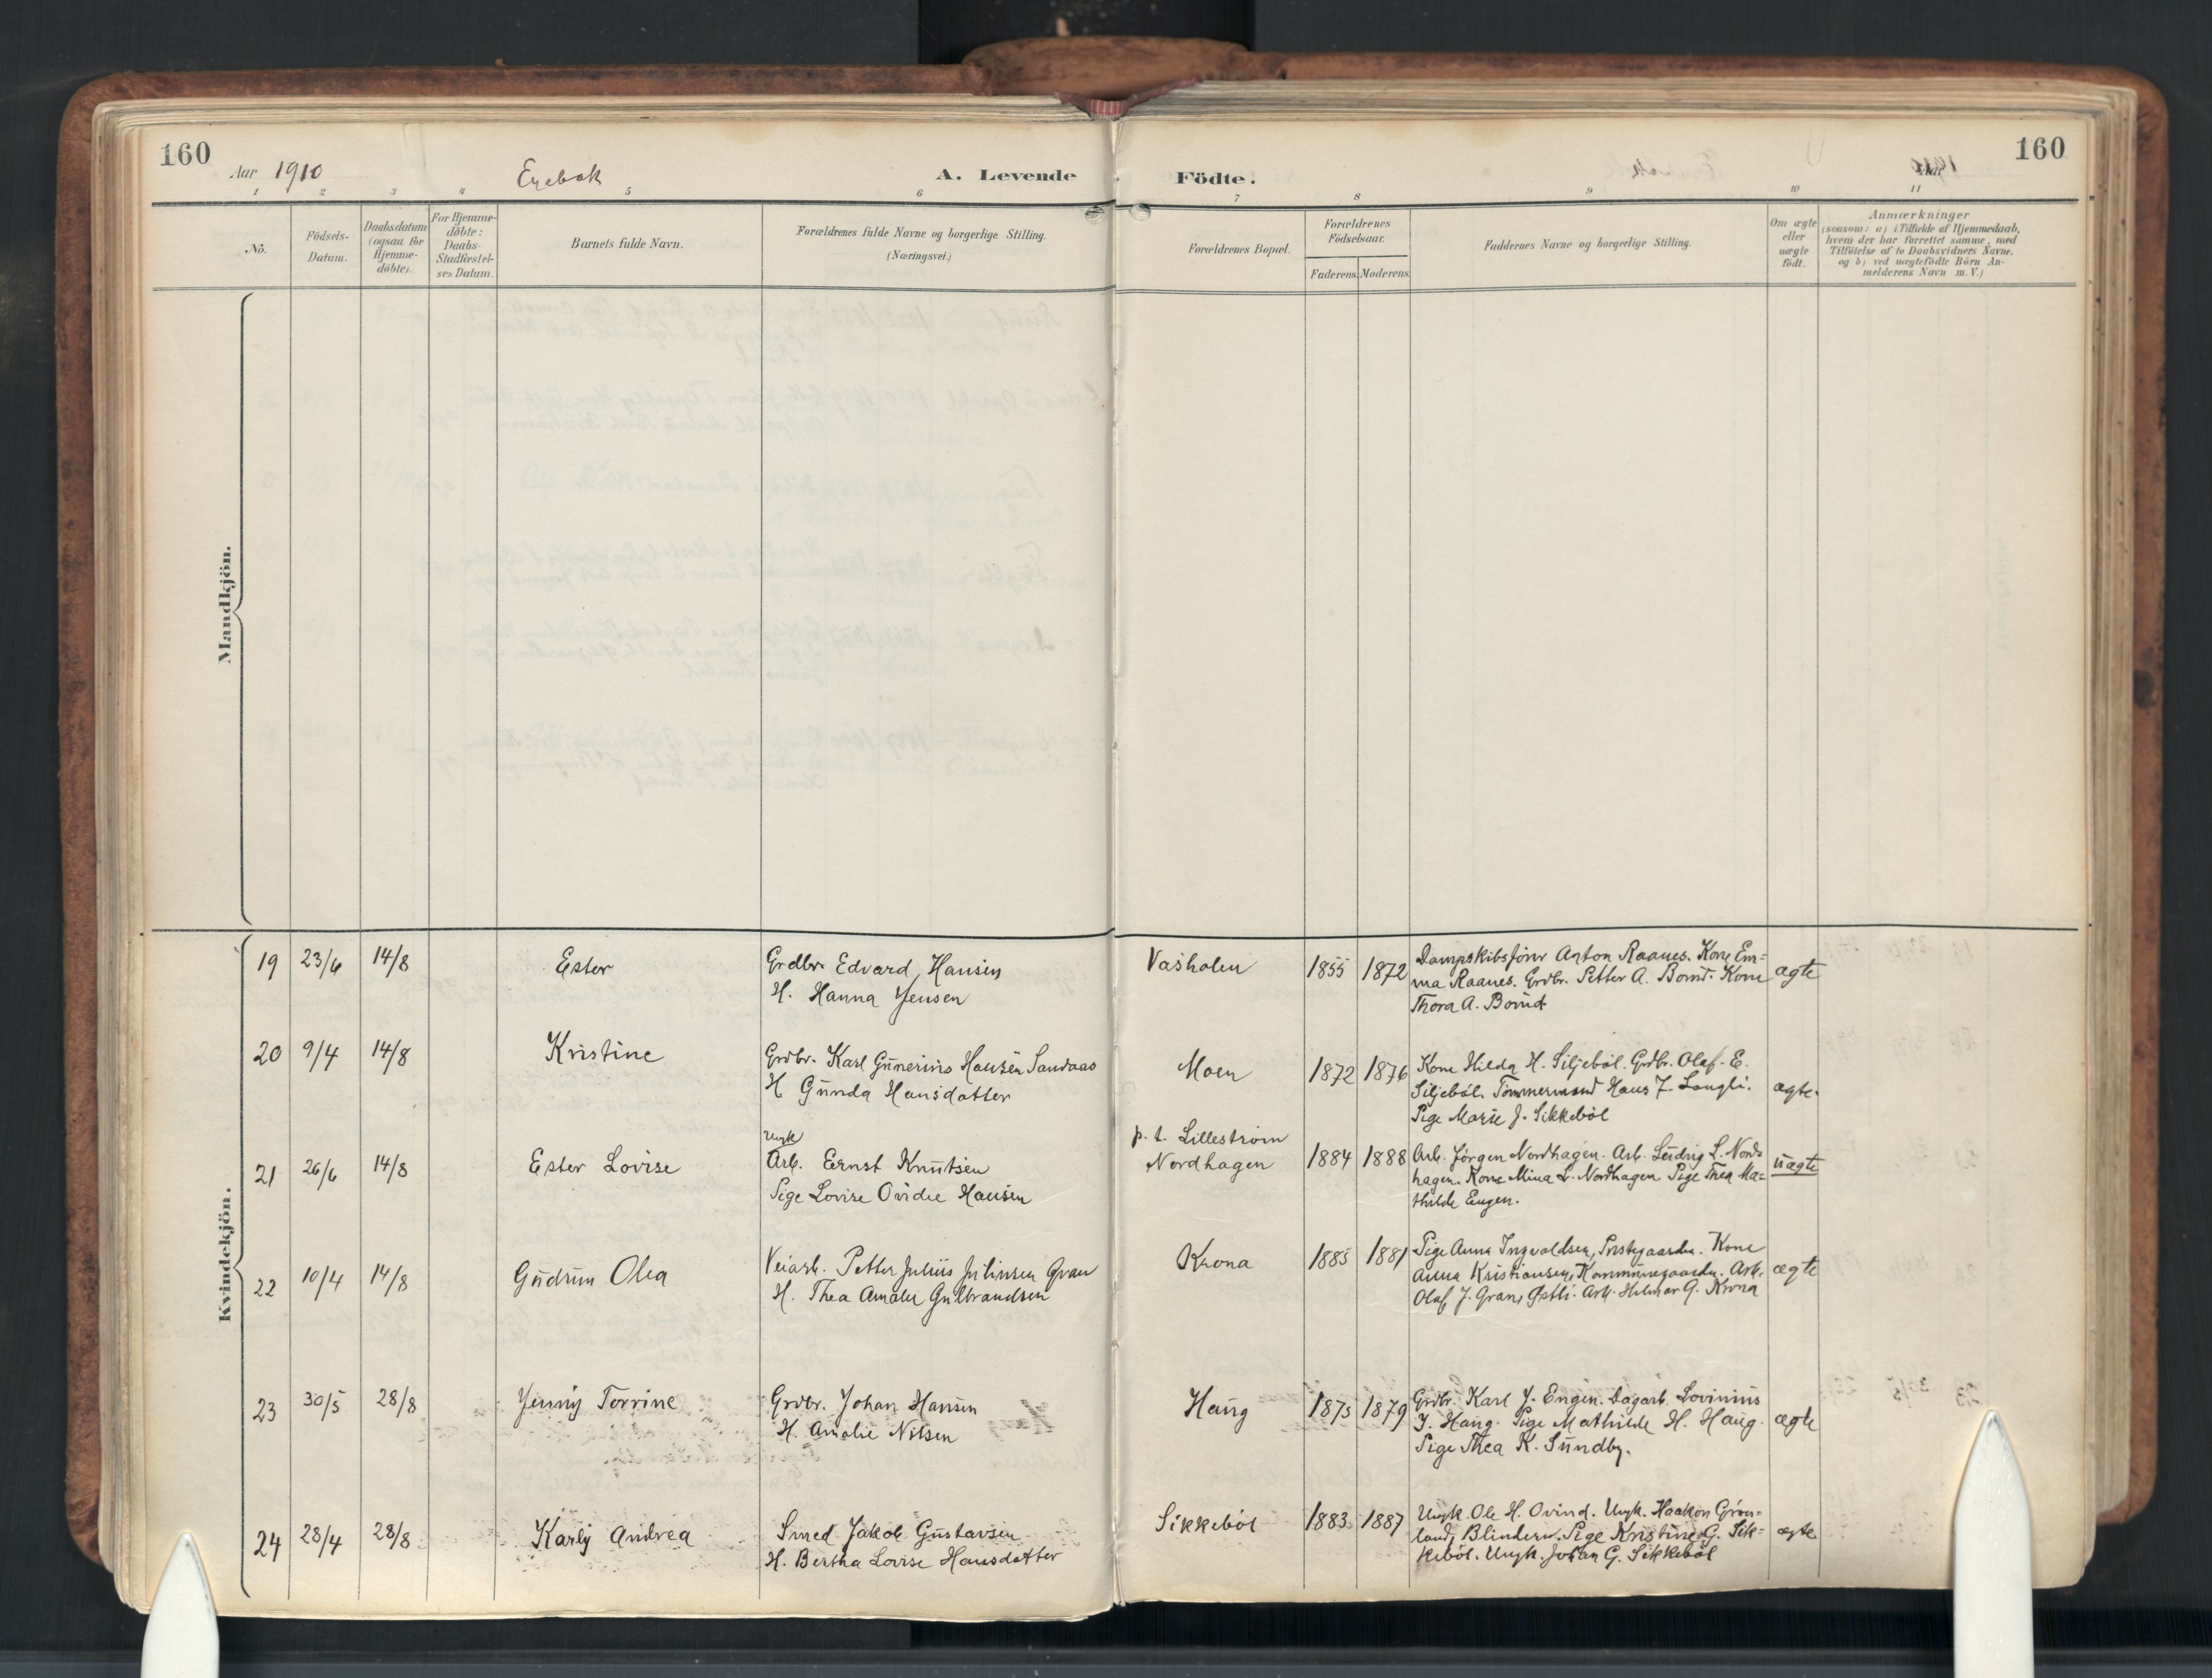 160
160
Aar 1910
Enebak
A. Levende
Födte.
1 2 3 4 5 6 7 8 9 10 11
No.
Födsels-
Datum.
Daabsdatum
(ogsaa for
Hjemme-
döbte).
For Hjemme-
döbte:
Daabs-
Stadfæstel-
ses Datum.
Barnets fulde Navn.
Forældrenes fulde Navne og borgerlige Stilling.
(Næringsvei.)
Forældrenes Bopæl.
Forældrenes
Födselsaar.
Faderens. Moderens.
Faddernes Navne og borgerlige Stilling.
Om ægte
eller
uægte
födt.
Anmærkninger
(saasom: a) i Tilfælde af Hjemmedaab,
hvem der har forrettet samme, med
Tilföielse af to Daabsvidners Navne,
og b) ved uægtefödte Börn An-
melderens Navn m. V.)
Mandkjön.
Kvindekjön.
19 23/6 14/8 Ester
Grdbr. Edvard Hansen
H. Hanna Jensen
Vasholen 1855 1872
Dampskibsförer Anton Raanes. Kone Em=
ma Raanes. Grdbr. Petter A. Bornd. Kone
Thora A. Börud
ægte
20 9/4 14/8 Kristine
Grdbr. Karl Gunerius Hansen Sandaas
H Gunda Hansdatter
Moen 1872 1876
Kone Hilda H. Siljeböl. Grdbr. Olaf E.
Siljeböl. Tömmermand Hans J. Langli.
Pige Marie J. Sikkeböl
ægte.
21 26/6 14/8 Ester Lovise
Ungk
Arb. Ernst Knutsen
Pige Lovise Ovidie Hansen
p. t. Lilleström
Nordhagen 1884 1888
Arb. Jörgen Nordhagen. Arb. Ludvig L. Nord=
hagen. Kone Mina L. Nordhagen. Pige Thea Ma=
thilde Engen.
uægte
22 10/4 14/8 Gudrun Olea
Veiarb. Petter Julius Julinsen Gran
H. Thea Amalie Gulbrandsen
Krona 1885 1881
Pige Anna Ingvaldsen, Prestegaarden. Kone
Anna Kristiansen, Kommunegaarden. Arb.
Olaf J. Gran, Østli. Arb. Hilmar G. Krona
ægte
23 30/5 28/8 Jenny Torrine
Grdbr. Johan Hansen
H. Amalie Nilsen
Haug 1875 1879
Grdbr. Karl J. Engen. Dagarb. Lovinius
J. Haug. Pige Mathilde H. Haug.
Pige Thea K. Sundby.
ægte
24 28/4 28/8 Karly Andrea
Smed Jakob Gustavsen
H. Bertha Lovise Hansdatter
Sikkeböl 1883 1887
Ungk. Ole H. Ovind. Ungk. Haakon Grön=
land, Blindern. Pige Kristine G. Sik=
keböl. Ungk. Johan G. Sikkeböl
ægte